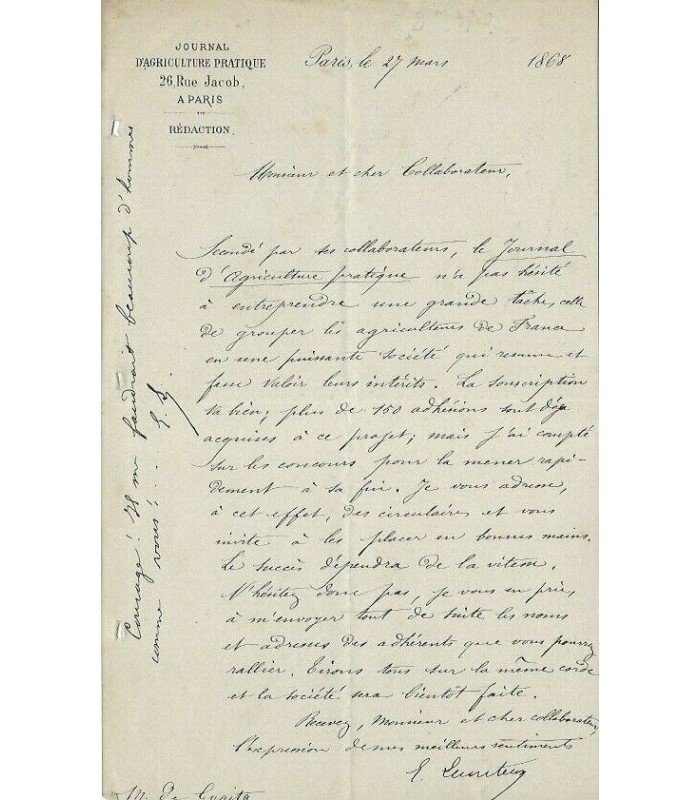 JOURNAL
D'AGRICULTURE PRATIQUE
26, Rue Jacob,
A PARIS
RÉDACTION.
Paris, le 27 mars 1868
Monsieur et cher Collaborateur,
Secondé par ses collaborateurs, le Journal
d'Agriculture pratique n'a pas hésité
à entreprendre une grande tâche, celle
de grouper les agriculteurs de France
en une puissante société qui remue et
fasse valoir leurs intérêts. La souscription
va bien; plus de 150 adhésions sont déja
acquises à ce projet; mais j'ai compté
sur les concours pour la mener rapi-
dement à sa fin. Je vous adresse,
à cet effet, des circulaires et vous
invite à les placer en bonnes mains.
Le succès dépendra de la vitesse.
N'hésitez donc pas, je vous en prie,
à m'envoyer tout de suite les noms
et adresses des adhérents que vous pourrez
rallier. Tirons tous sur la même corde
et la société sera bientôt faite.
Recevez, Monsieur et cher collaborateur,
l'expression de mes meilleurs sentiments
E.
M. de Guaita
Courage! Il me faudrait beaucoup d'hommes
comme vous! ...